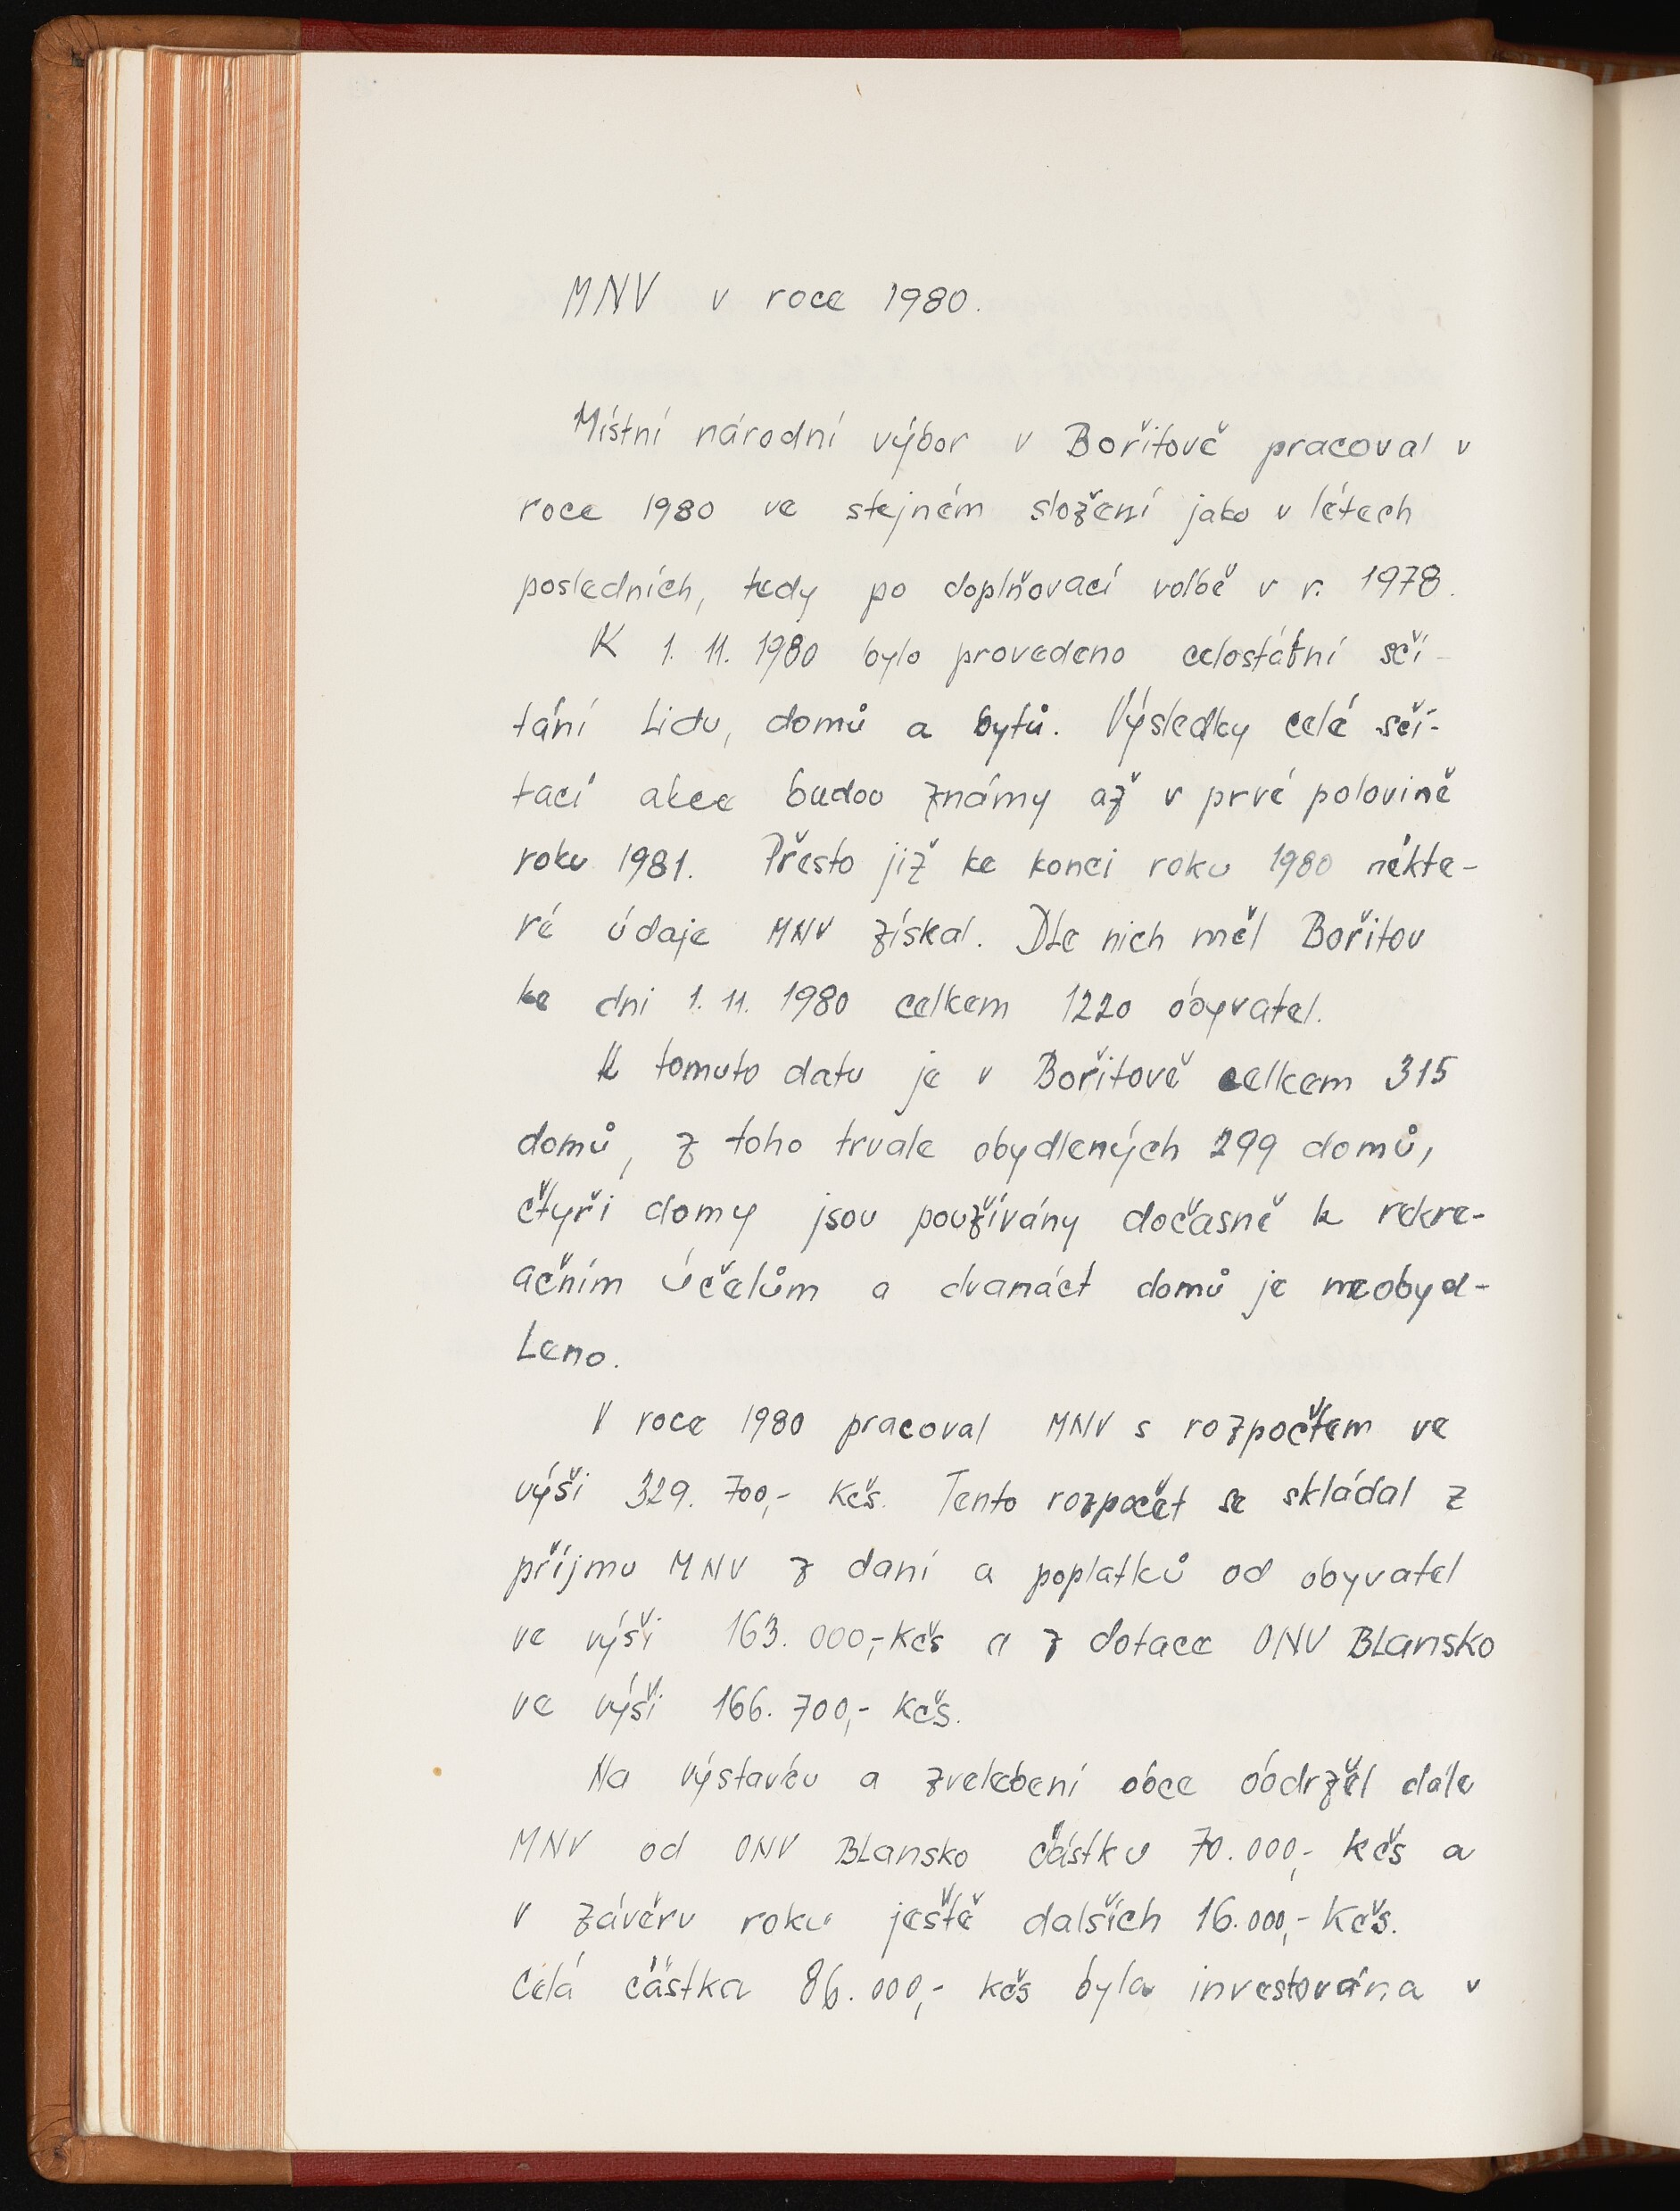 MNV v roce 1980.
Místní národní výbor v Bořitově pracoval v
roce 1980 ve stejném složení jako v létech
posledních, tedy po doplňovací volbě v r. 1978.
K 1. 11. 1980 bylo provedeno celostátní sčí-
tání lidu, domů a bytů. Výsledky celé sčí-
tací akce budou známy až v prvé polovině
roku 1981. Přesto již ke konci roku 1980 někte-
ré údaje MNV získal. Dle nich měl Bořitov
ke dni 1. 11. 1980 celkem 1220 obyvatel.
K tomuto datu je v Bořitově celkem 315
domů, z toho trvale obydlených 299 domů,
čtyři domy jsou používány dočasně k rekre-
ačním účelům a dvanáct domů je neobyd-
leno.
V roce 1980 pracoval MNV s rozpočtem ve
výši 329. 700,- Kčs. Tento rozpočet se skládal z
příjmu MNV z daní a poplatků od obyvatel
ve výši 163. 000,- Kčs a z dotace ONV Blansko
ve výši 166. 700,- Kčs.
Na výstavbu a zvelebení obce obdržel dále
MNV od ONV Blansko částku 70.000,- Kčs a
v závěru roku ještě dalších 16.000,- Kčs.
Celá částka 86.000,- Kčs byla investována v